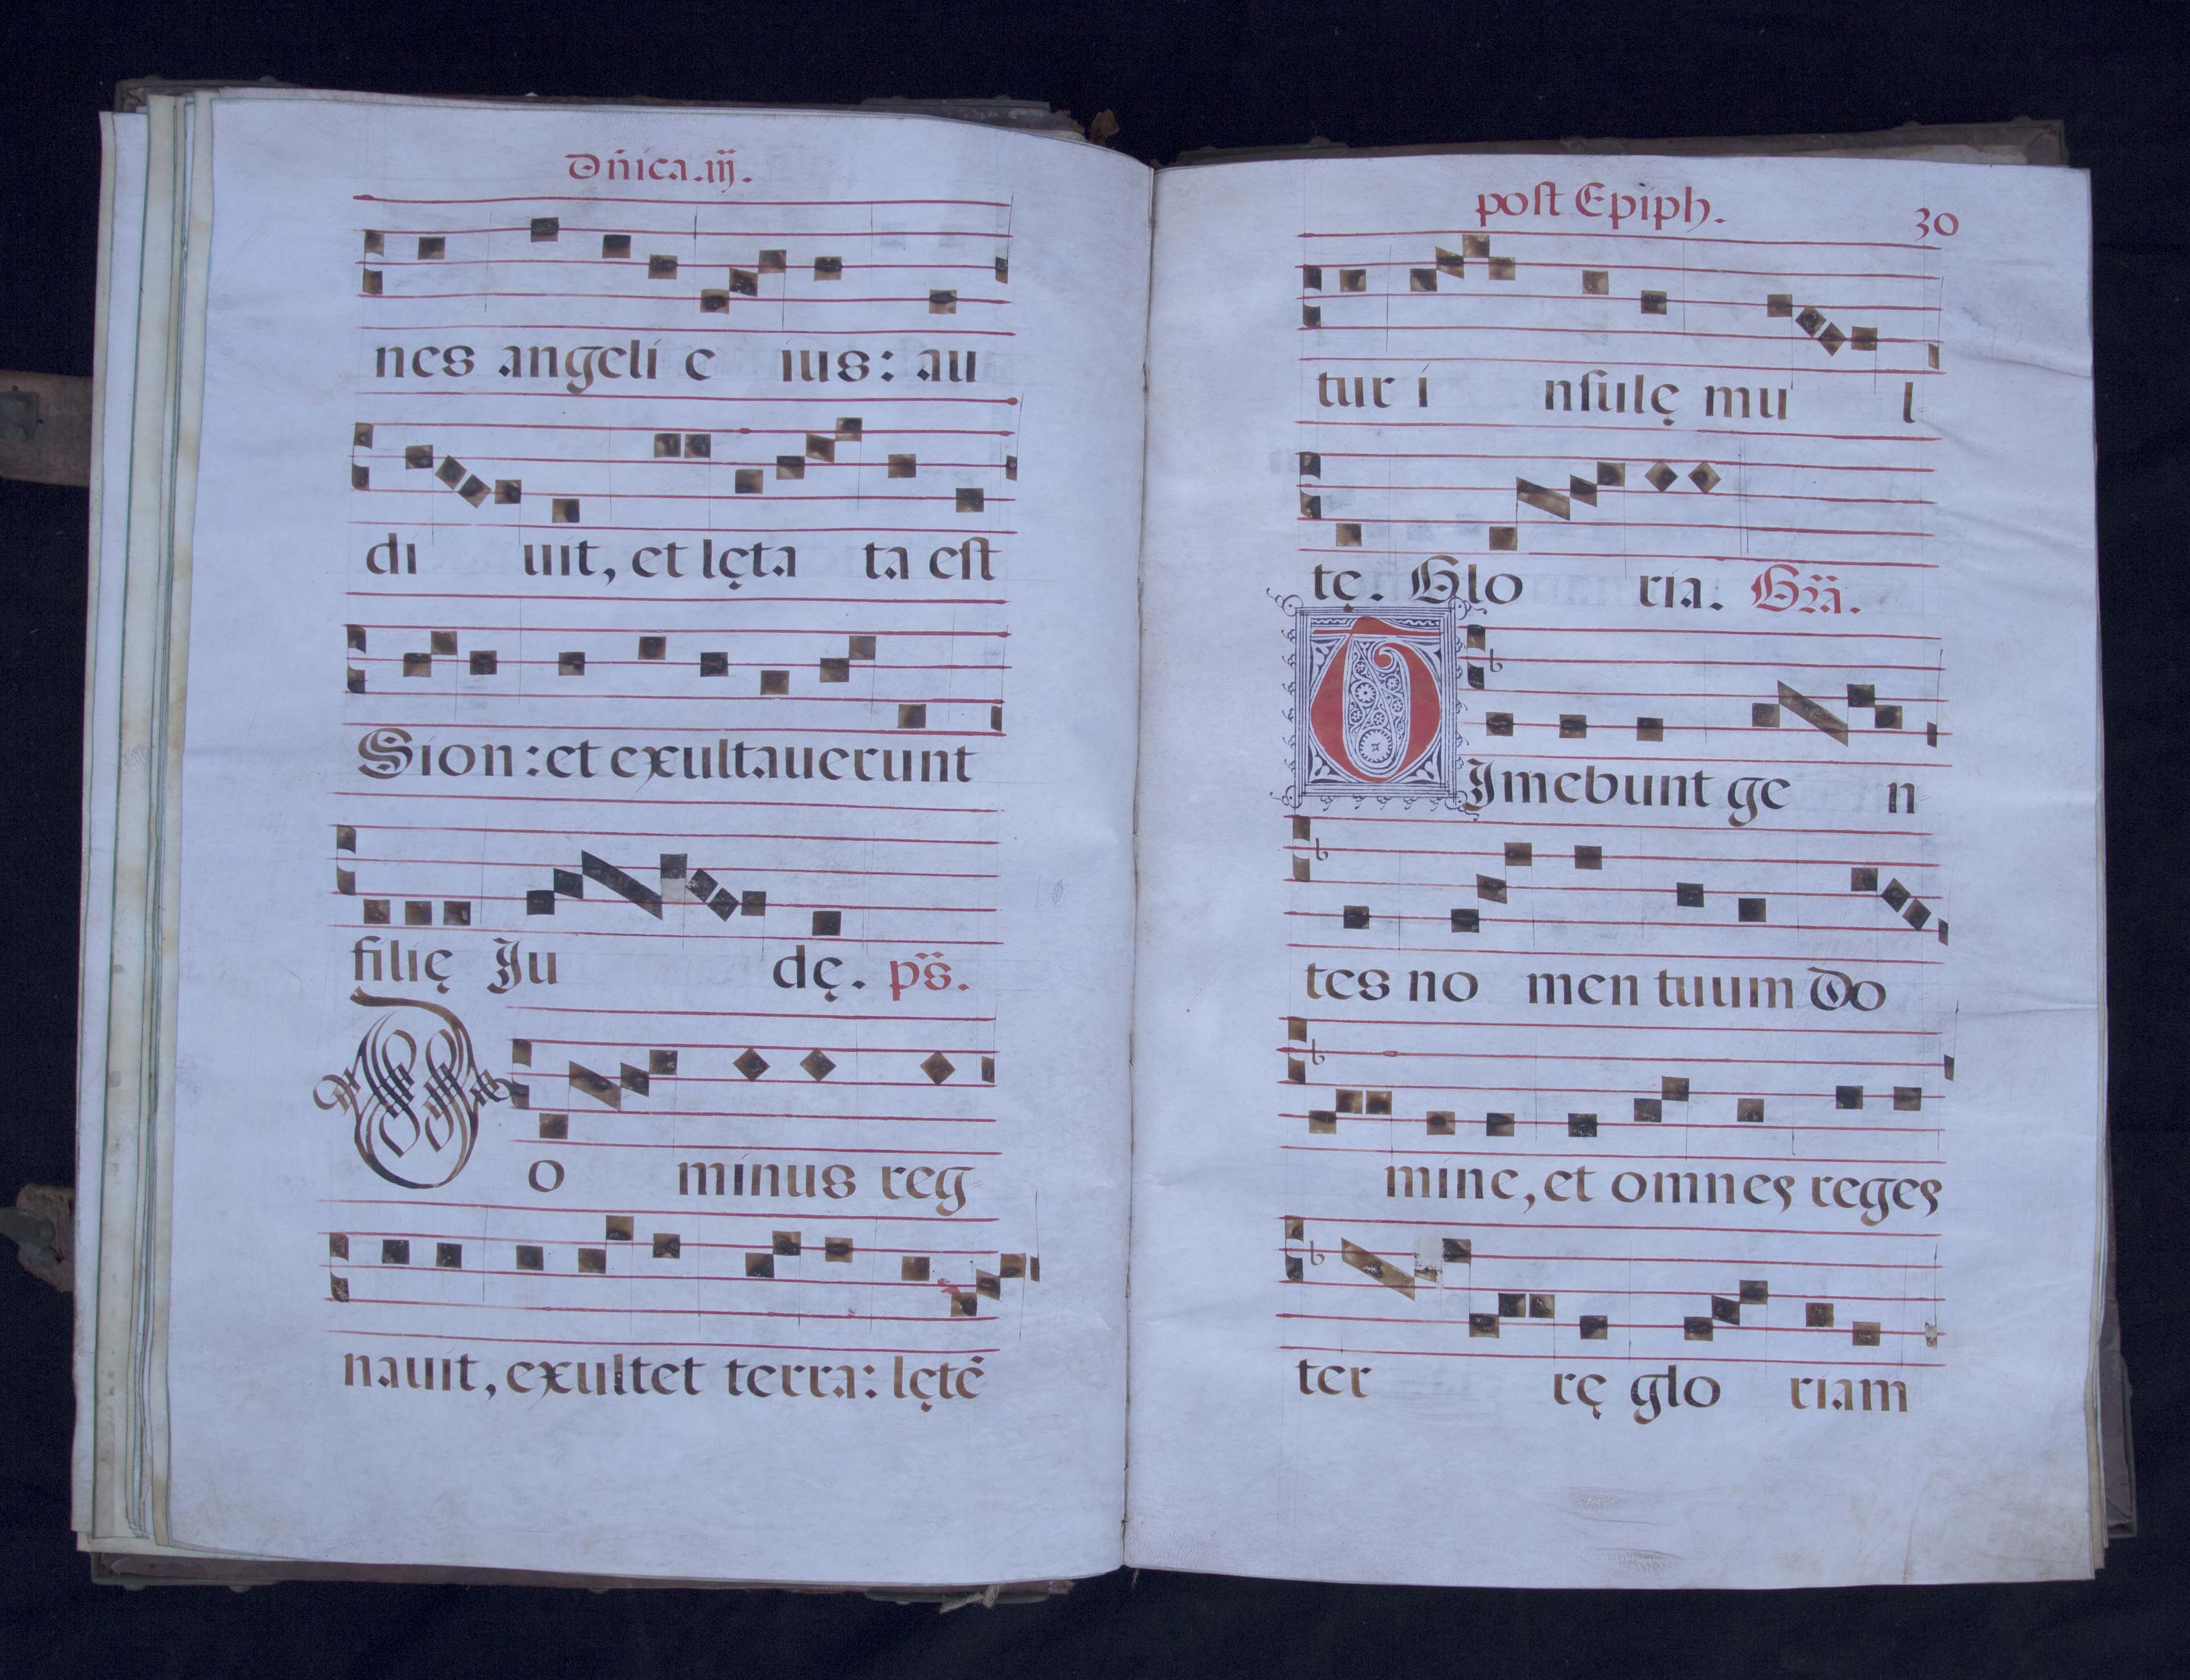 Dñica.iij.
nes angeli e ius: au
di uit, et lęta ta est
Sion: et exultauerunt
filię Ju dę. ps.
Do minus reg
nauit, exultet terra: lętẽ
post Epiph. 30
tur i nsulę mu l
tę. Glo ria. Gra.
TImebunt ge n
tes no men tuum Do
mine, et omnes reges
ter rę glo riam